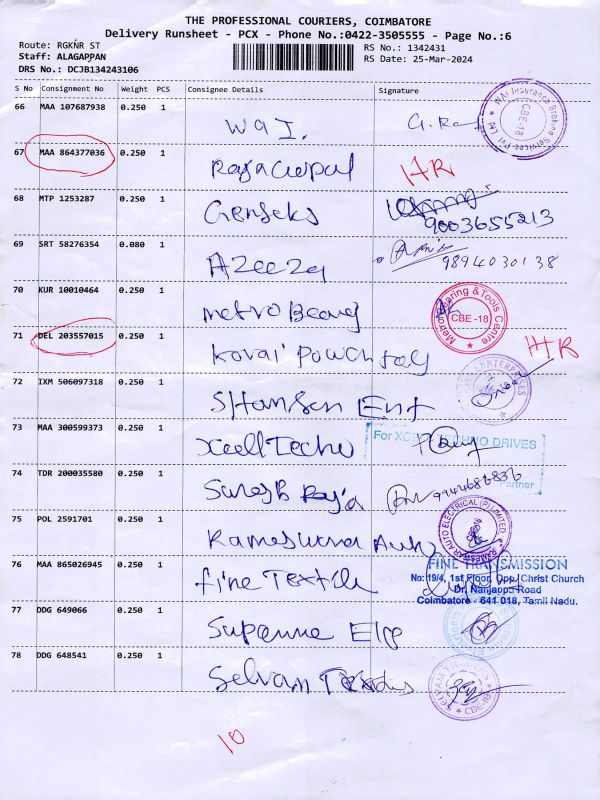 THE PROFESSIONAL COURIERS, COIMBATORE
Delivery Runsheet - PCX - Phone No.:0422-3505555 - Page No.:6
Route: RGKNR ST
RS No.: 1342431
Staff: ALAGAPPAN
RS Date: 25-Mar-2024
DRS No.: DCJB134243106
S No Consignment No Weight PCS Consignee Details Signature
66 MAA 107687938 0.250 1
WAI.
WAI Insurance Broking Services Pvt Ltd
CBE-18
67 MAA 864377036 0.250 1
HR
68 MTP 1253287 0.250 1
Genseks
9003655213
69 SRT 58276354 0.080 1
Azeeza
9894030138
70 KUR 10010464 0.250 1
Metro Bearing & Tools Centre
CBE -18
71 DEL 203557015 0.250 1
Kovai
HR
72 IXM 506097318 0.250 1
ENTERPRISES
73 MAA 300599373 0.250 1
For DRIVES
Partner
74 TDR 200035580 0.250 1
Suresh Raja
9944686836
75 POL 2591701 0.250 1
AUTO ELECTRICAL (P) LIMITED
76 MAA 865026945 0.250 1
Fine Textile
FINE TRANSMISSION
No: 19/4, 1st Floor, Opp. Christ Church
Dr. Nanjappa Road
Coimbatore - 641 018, Tamil Nadu.
77 DDG 649066 0.250 1
78 DDG 648541 0.250 1
Selvam
SELVAM
CBE-18
10